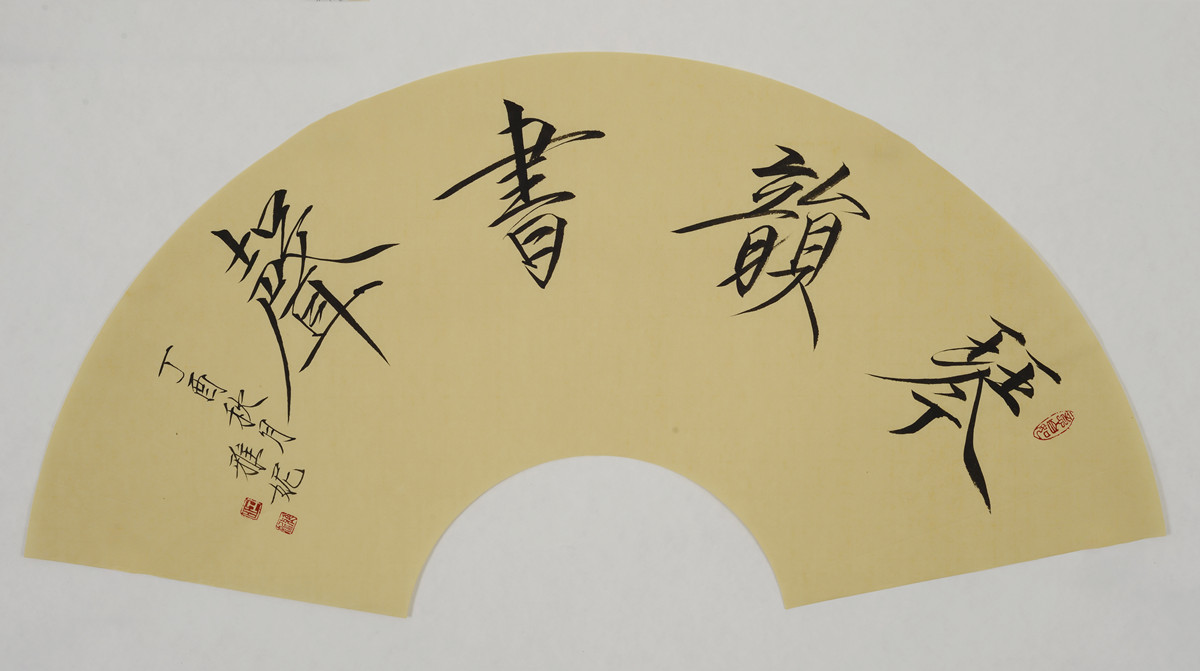 琴韻書聲
丁酉秋月
雅妮